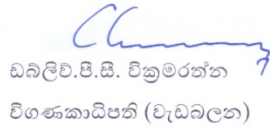 ඩබ්ලිව්.පී.සී. වික්‍රමරත්න
විගණකාධිපති (වැඩබලන)